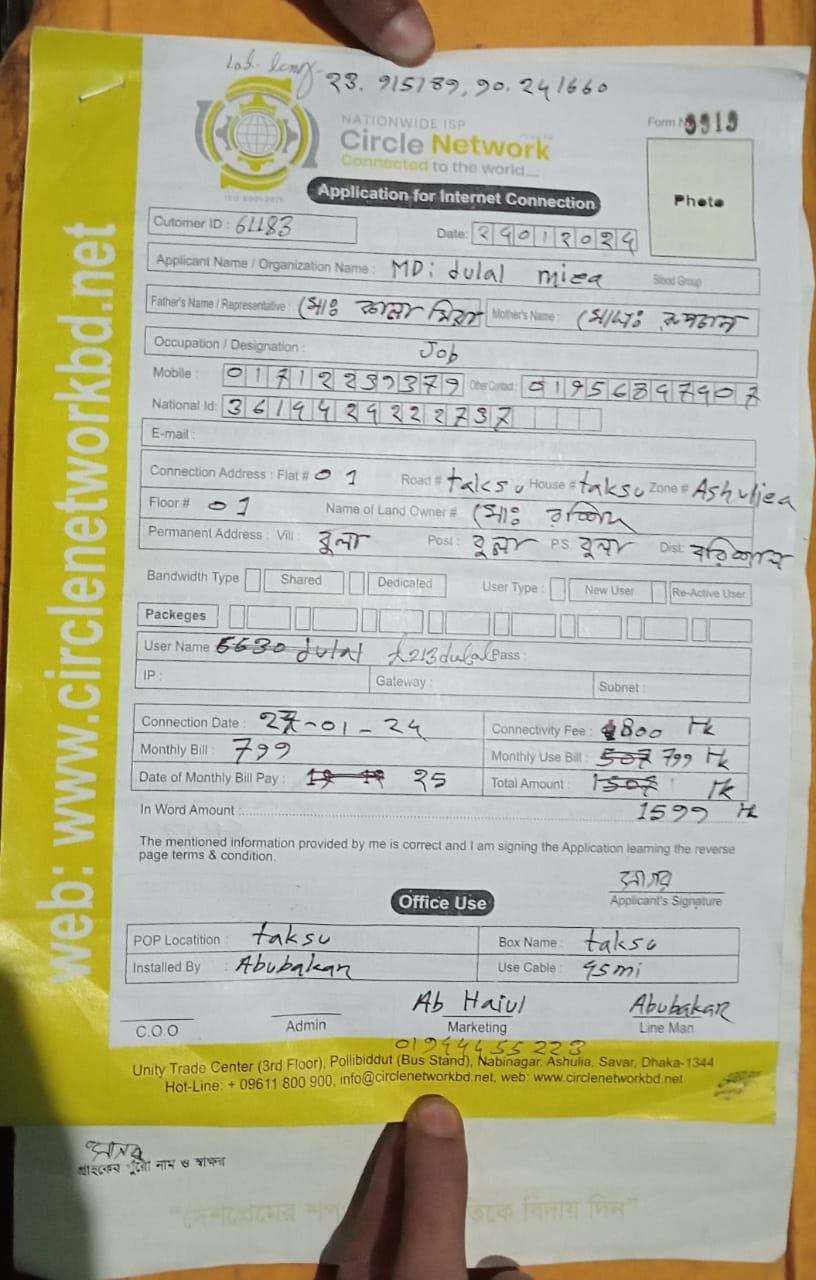 23.915789, 90.241660
NATIONWIDE ISP
Circle Network
Connected to the world....
Form No
Photo
Application for Internet Connection
Cutomer ID : 61183
Date: 24012024
Applicant Name / Organization Name : MD: dulal miea Blood Group
Father's Name / Representative : মোঃ কালা মিয়া Mother's Name :
Occupation / Designation : Job
Mobile : 01712239379 Other Contact : 01956897907
National Id: 3619429222737
E-mail :
Connection Address : Flat # 01 Road # taksu House # taksu Zone # Ashuliea
Floor # 01 Name of Land Owner # মোঃ
Permanent Address : Vill : Post : P.S. Dist:
Bandwidth Type Shared Dedicated User Type : New User Re-Active User
Packeges
User Name 6630 dulal 213dulal Pass :
IP : Gateway : Subnet :
Connection Date : 27-01-24 Connectivity Fee : 800 Tk
Monthly Bill : 799 Monthly Use Bill : 507 799 Tk
Date of Monthly Bill Pay : 25 Total Amount : Tk
In Word Amount : 1599 Tk
The mentioned information provided by me is correct and I am signing the Application learning the reverse
page terms & condition.
Applicant's Signature
Office Use
POP Locatition : taksu Box Name : taksu
Installed By : Abubakar Use Cable : 95mi
Ab Haiul Abubakar
C.O.O Admin Marketing Line Man
01944455223
Unity Trade Center (3rd Floor), Pollibiddut (Bus Stand), Nabinagar, Ashulia, Savar, Dhaka-1344
Hot-Line: + 09611 800 900, info@circlenetworkbd.net, web: www.circlenetworkbd.net
web: www.circlenetworkbd.net
গ্রাহকের পুরো নাম ও স্বাক্ষর